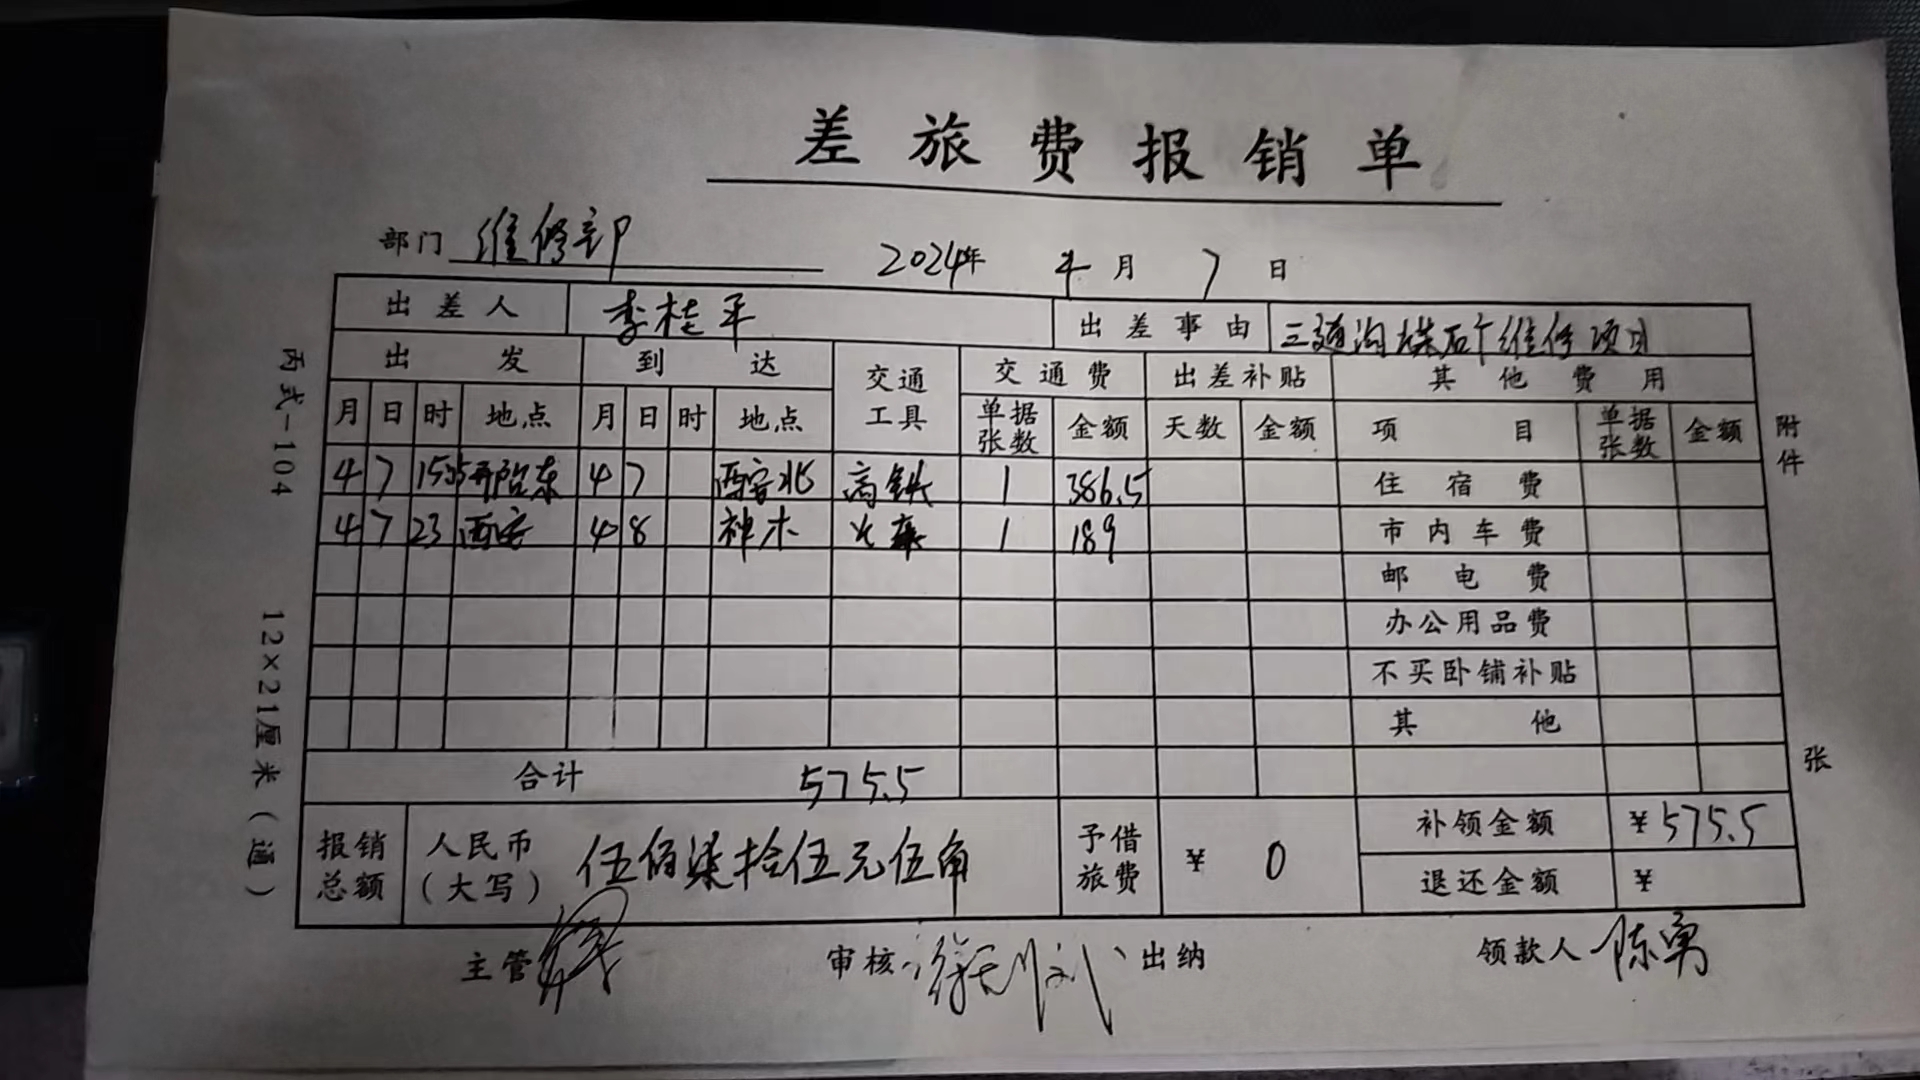 差旅费报销单
部门 维修部 2024年 4月 7日
出差人 李桂平 出差事由 三道沟煤矿维修项目
出发 到达 交通工具 交通费 出差补贴 其他费用
月 日 时 地点 月 日 时 地点 单据张数 金额 天数 金额 项目 单据张数 金额
4 7 邢台东 4 7 西安北 高铁 1 386.5 住宿费
4 7 23 西安 4 8 神木 火车 1 189 市内车费
邮电费
办公用品费
不买卧铺补贴
其他
合计 575.5
报销总额 人民币(大写) 伍佰柒拾伍元伍角 予借旅费 ¥ 0 补领金额 ¥575.5
退还金额 ¥
主管 审核 出纳 领款人 陈勇
丙式-104 12×21厘米(通)
附件 张